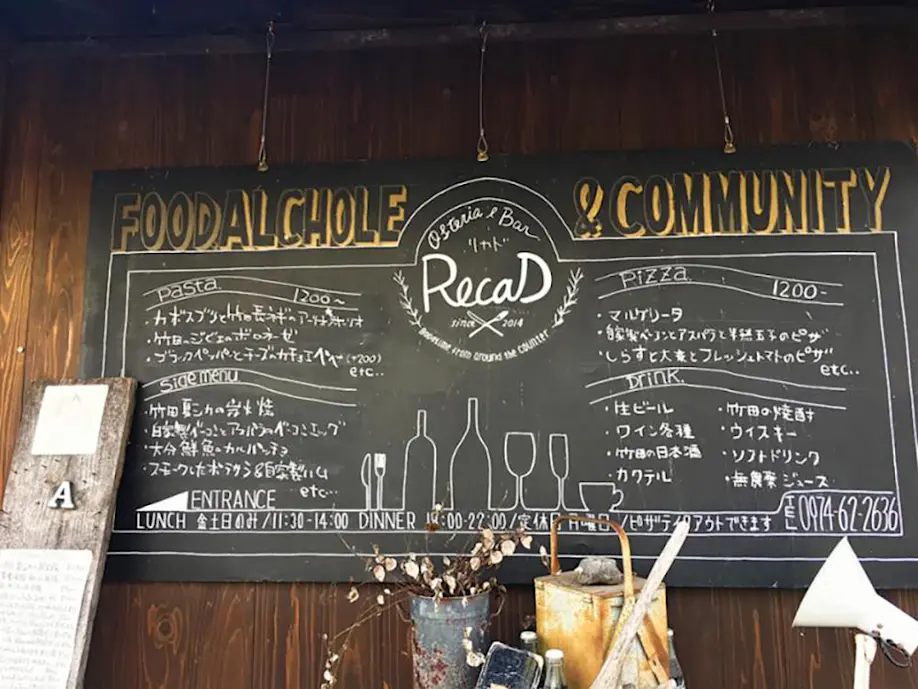 FOOD ALCHOLE
& COMMUNITY
Osteria e Bar
リカド
RecaD
since 2014
from around the counter
Pasta. 1200~
・カボスブリと竹田長ネギのアーリオオーリオ
・竹田のジビエのボロネーゼ
・ブラックペッパーとチーズのカチョエペペ(+200)
etc...
Side menu
・竹田夏シカの炭火焼
・自家製ベーコンとアスパラのベーコンエッグ
・大分鮮魚のカルパッチョ
・スモークしたポテサラ&自家製ハム
etc...
Pizza. 1200-
・マルゲリータ
・自家製ベーコンとアスパラと半熟玉子のピザ
・しらすと大葉とフレッシュトマトのピザ
etc...
Drink.
・生ビール
・ワイン各種
・竹田の日本酒
カクテル
・竹田の焼酎
・ウイスキー
・ソフトドリンク
・無農薬ジュース
ENTRANCE
LUNCH 金土日のみ/11:30-14:00 DINNER 18:00-22:00/定休日 月曜日/ピザテイクアウトできます
TEL 0974-62-2636
A